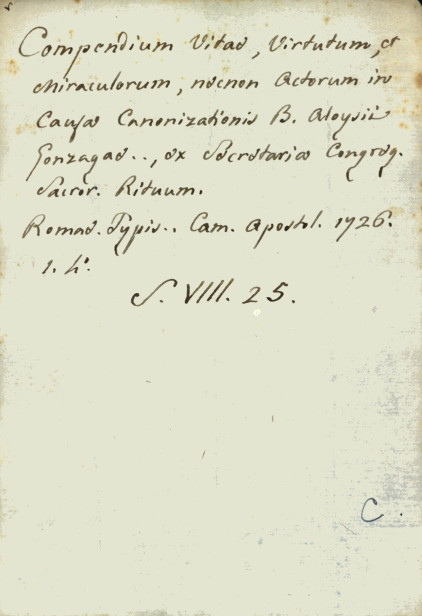 Compendium Vitae, Virtutum, et
Miraculorum, necnon Actorum in
Causa Canonizationis B. Aloysii
Gonzagae.., ex Secretaria Congreg.
Sacror. Rituum.
Romae. Typis.. Cam. Apostol. 1726.
1. 4°.
S. VIII. 25.
C.